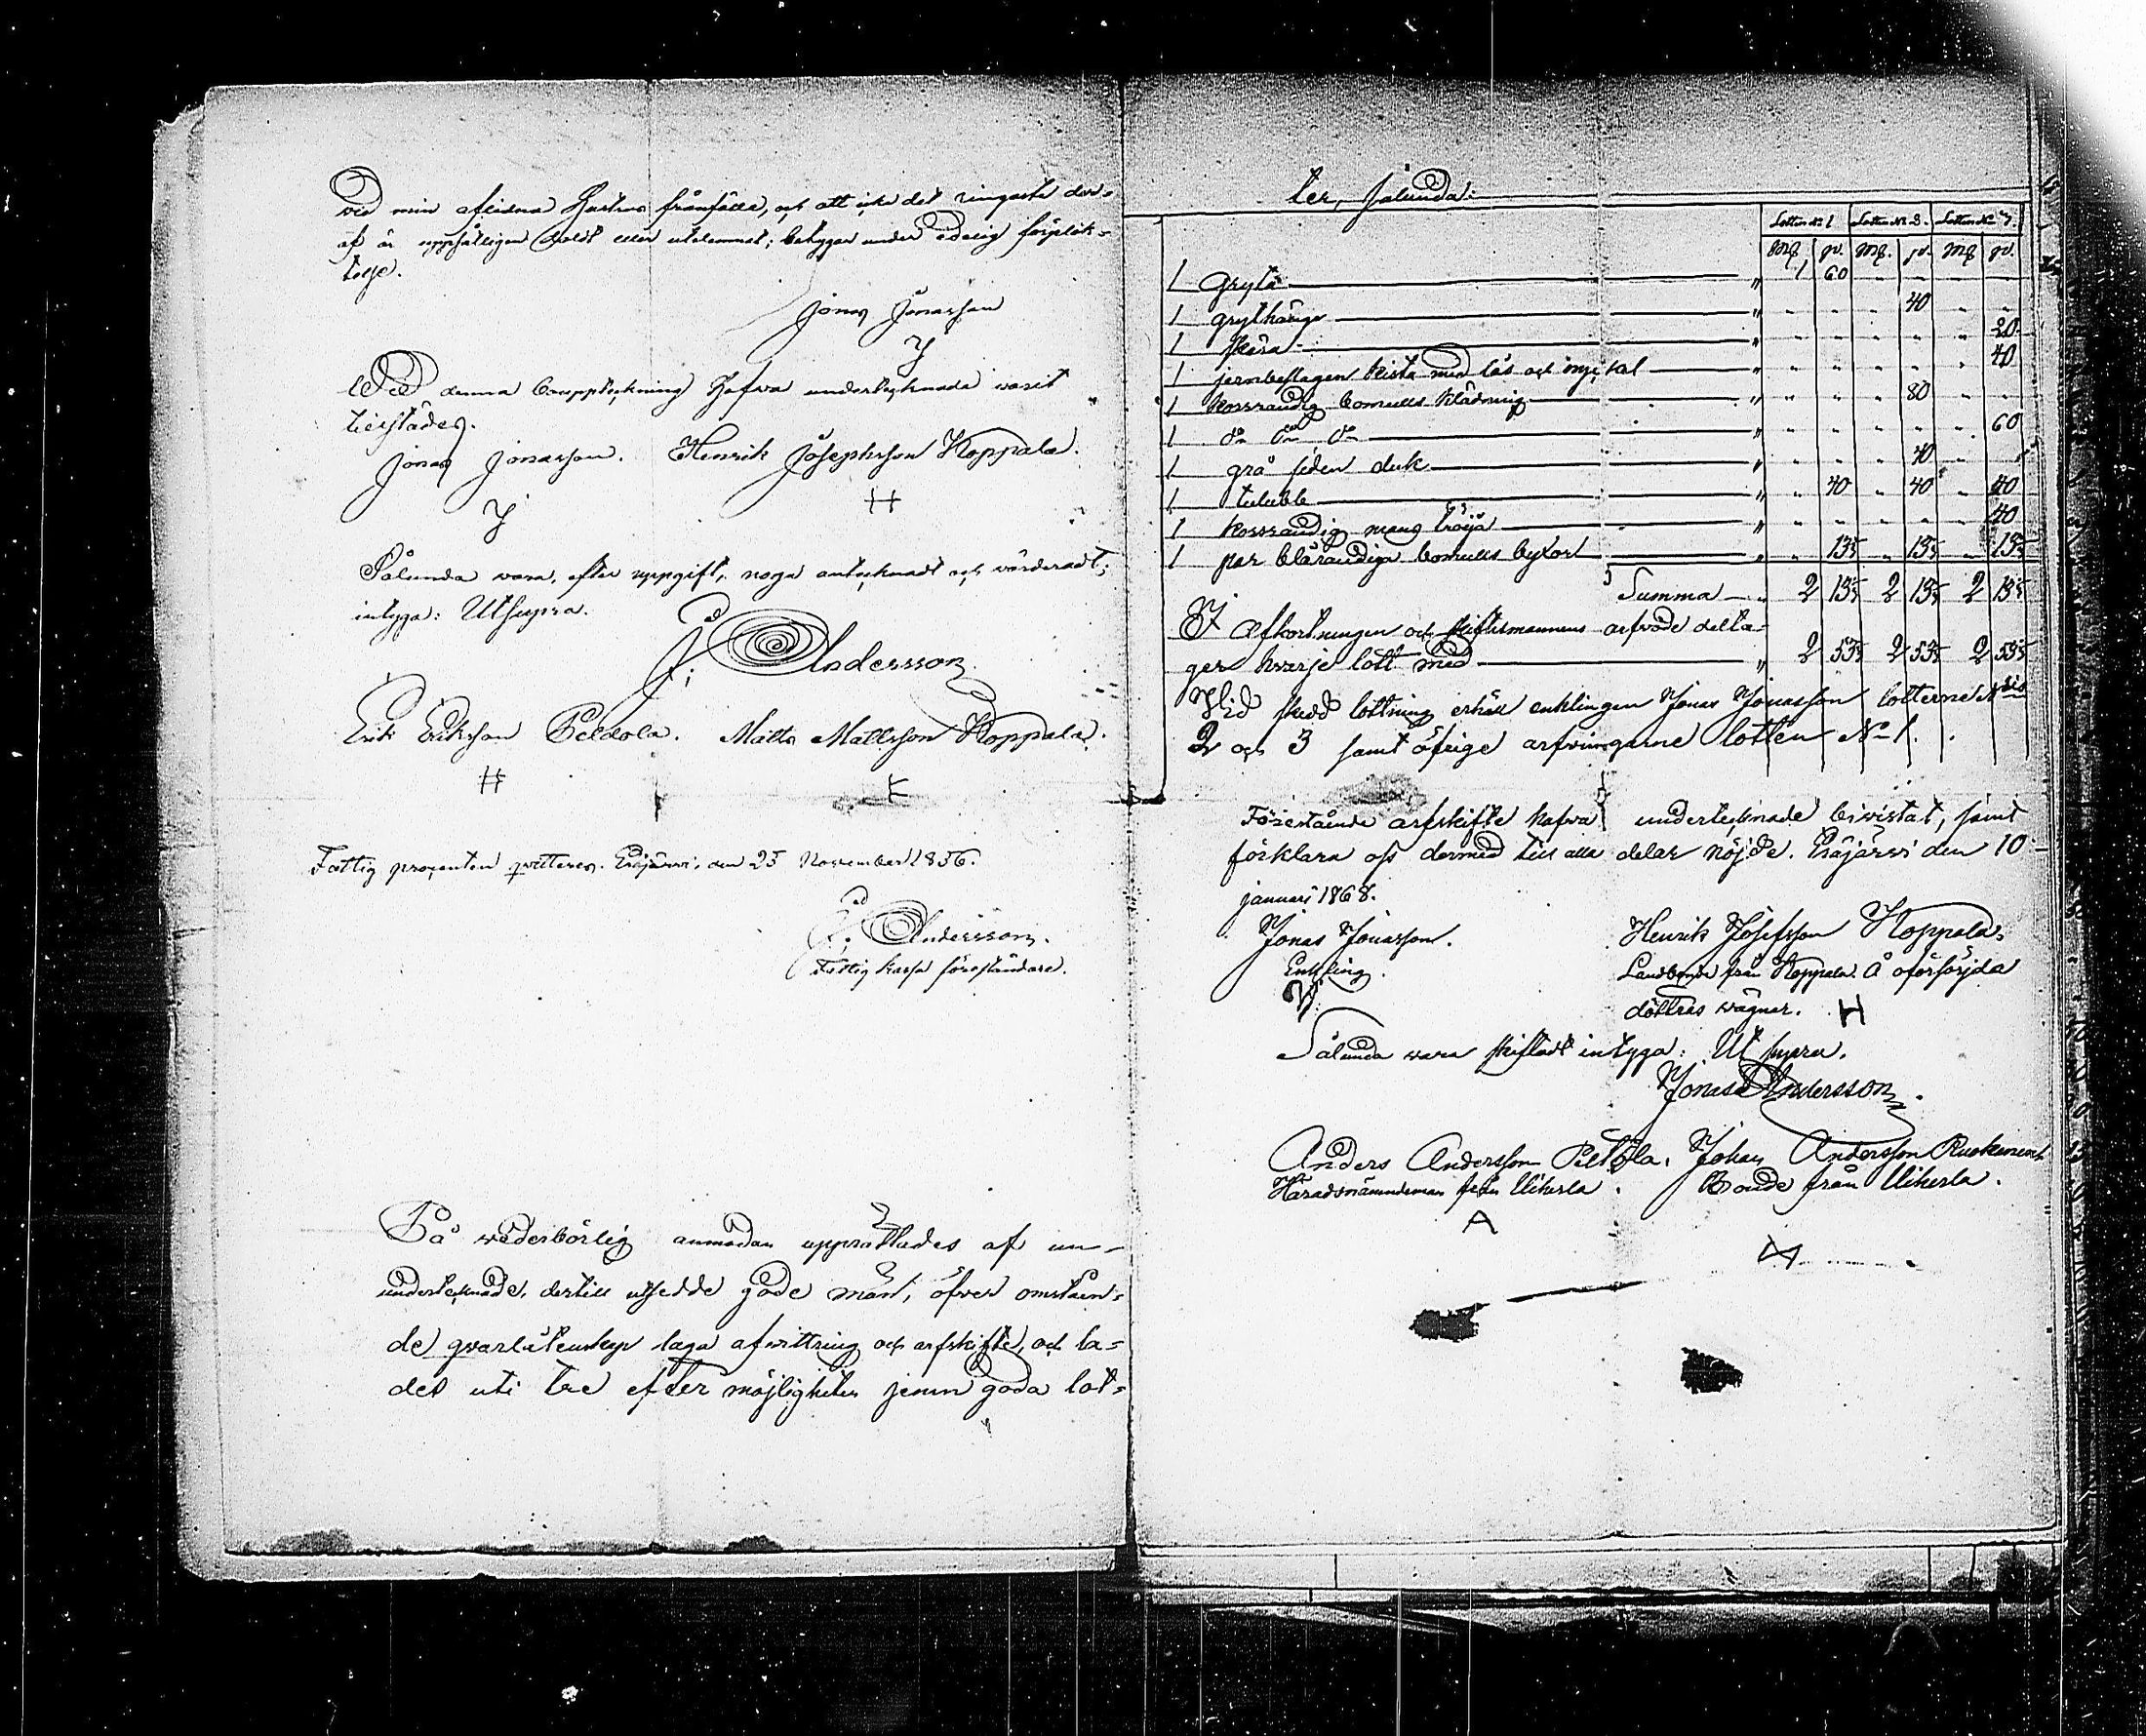 vid min aflidna Hustrus frånfälle, och att icke det ringaste der-
af är uppsåtligen doldt eller utelemnat; betygar under edelig förplik-
telse.
Jonas Jonasson
Wid denna bouppteckning hafva undertecknade varit
tillstädes.
Jonas Jonasson. Henrik Josephsson Koppala.
H
Sålunda vara, efter uppgift, noga antecknadt och värderadt;
intyga: Ut supra.
J. Andersson
Erik Eriksson Peldola. Matts Mattsson Koppala.
Fattig procenten qvitteras. Eräjärvi, den 25 November 1856.
J. Andersson.
Fattig kassa föreståndare.
På wederbörlig anmodan upprättades af un-
undertecknade, dertill utsedde gode män, öfver omstäen-
de qvarlåtenskap laga afvittring och arfskifte, och la-
des uti tre efter möjligheten jemn goda lot-
ter, sålunda:
Lotten No 1 Lotten No 2. Lotten No 3.
Mk p:i. Mk. p:i. Mk p:i.
1 Gryta " 1 60 " " " "
1 grythänge " " " " 40 " "
1 skära " " " " " " 20
1 jernbeslagen kista med lås och nyckel " " " " " " 40
1 korsrandig bomulls klädning " " " " 80 " "
1 do do do " " " " " " 60
1 grå siden duk " " " " 40 " "
1 " " 40 " 40 " 40
1 korsrandig mans tröja " " " " " " 40
1 par blårandiga bomulls byxor " " 13⅓ " 13⅓ " 13⅓
Summa " 2 13⅓ 2 13⅓ 2 13⅓
I afkortningen och skiftesmannens arfvode delta-
ger hvarje lott med " 2 53⅓ 2 53⅓ 2 53⅓
Vid skedd lottning erhöll enklingen Jonas Jonasson lotterne Nris
2 och 3 samt öfrige arfvingarne lotten No 1.
Förestående arfskifte hafva undertecknade bivistat, samt
förklara oss dermed till alla delar nöjde. Eräjärvi den 10
januari 1868.
Jonas Jonasson. Henrik Josefsson Koppala,
Enkling. Landbonde från Koppala. Å oförsörjda
döttras vägnar. H
Sålunda vara skiftadt intyga: Ut supra.
Jonas Andersson.
Anders Andersson Peltola, Johan Andersson
Häradsnämndeman från Uiherla. Bonde från Uiherla.
A